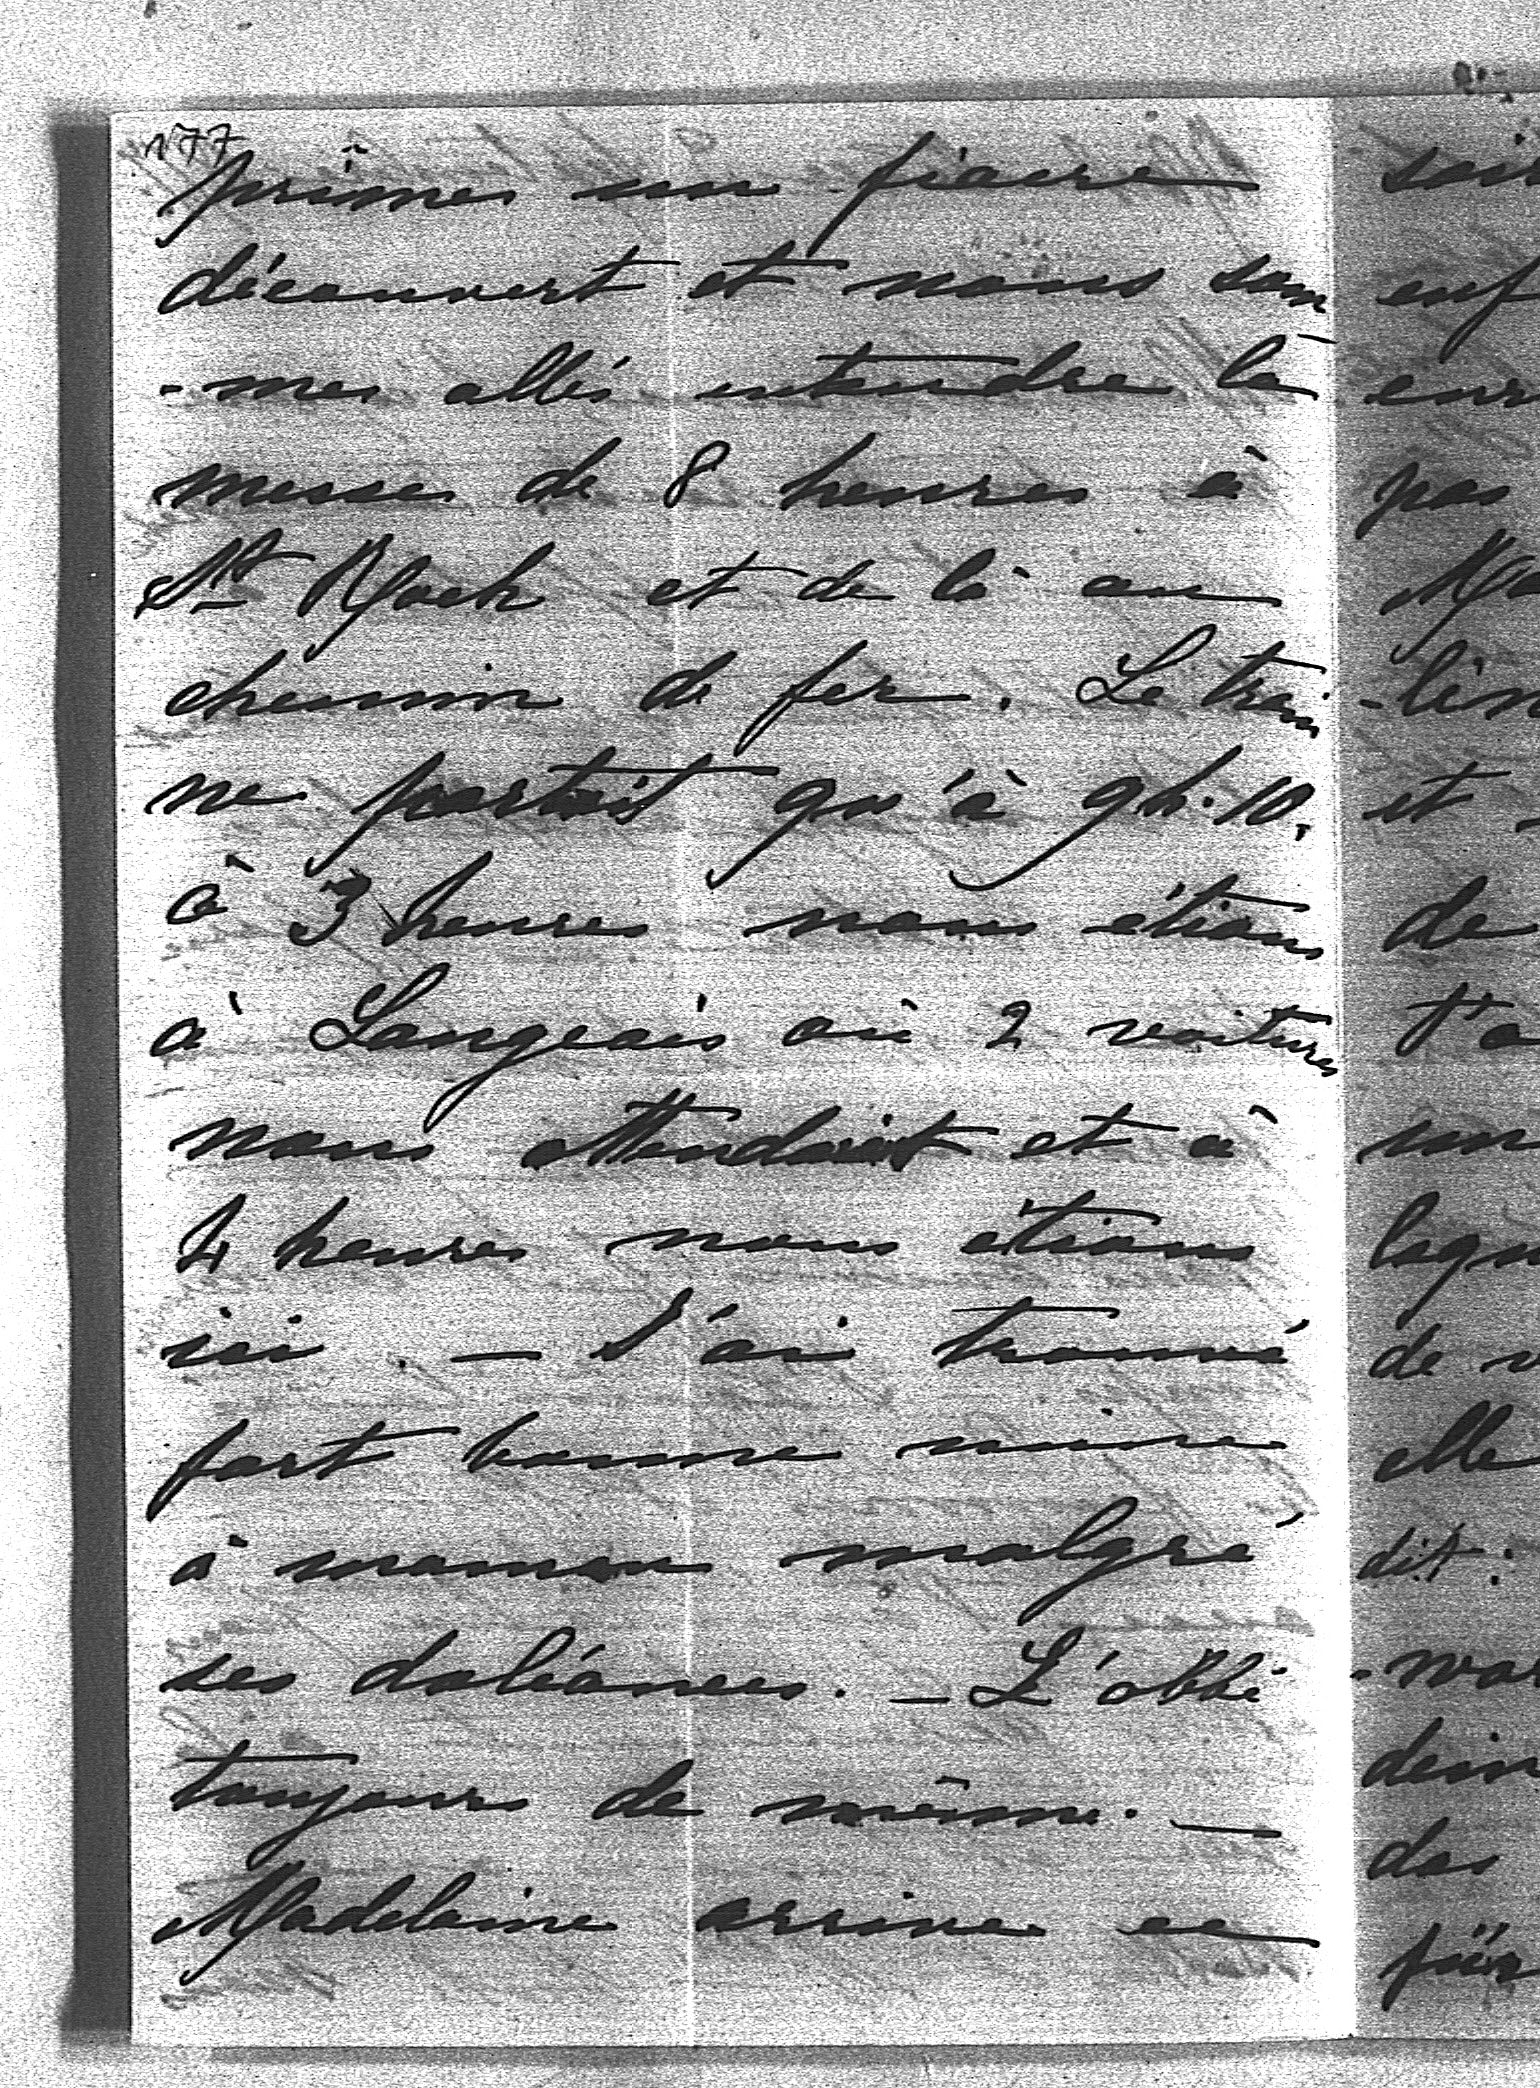 177
prîmes un fiacre
découvert et nous som
-mes allés entendre la
messe de 8 heures à
St Roch et de là au
chemin de fer. Le train
ne partait qu'à 9h.10.
à 3 heures nous étions
à Langeais où 2 voitures
nous attendait et à
4 heures nous étions
ici. — J'ai trouvé
fort bonne mine
à maman malgré
ses doléances. — L'abbé
toujours de même. —
Madeleine arrive ce